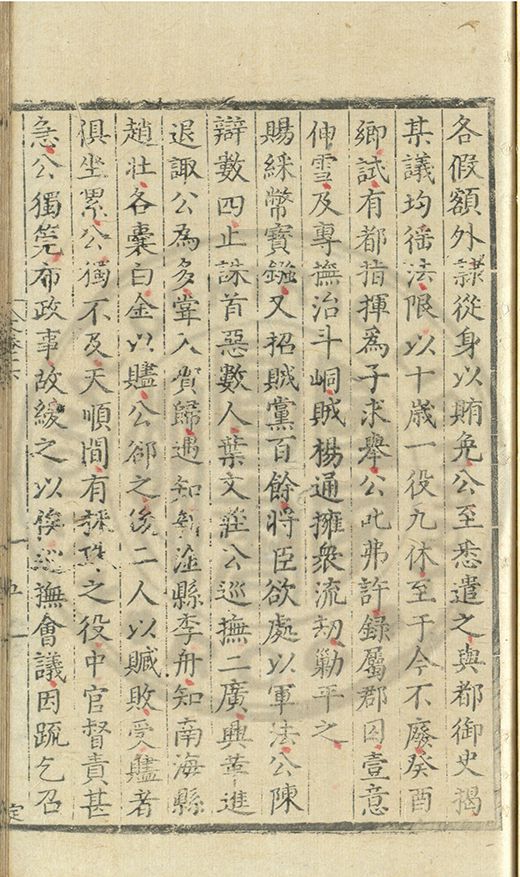 各假額外隷從身以賄免公至悉遣之與都御史揭
某議均徭法限以十歲一役九休至于今不廢癸酉
鄉試有都指揮爲子求舉公叱弗許録屬郡囚壹意
伸雪及專撫治斗峒賊楊通擁衆流刼勦平之
賜綵幣寶鏹又招賊黨百餘將臣欲處以軍法公陳
辯數四止誅首惡數人葉文莊公巡撫二廣興革進
退諏公為多嘗入賀歸遇知新淦縣李舟知南海縣
趙壯各橐白金以贐公卻之後二人以贓敗受贐者
俱坐累公獨不及天順間有採珠之役中官督責甚
急公獨筦布政事故緩之以俟巡撫會議因疏乞召